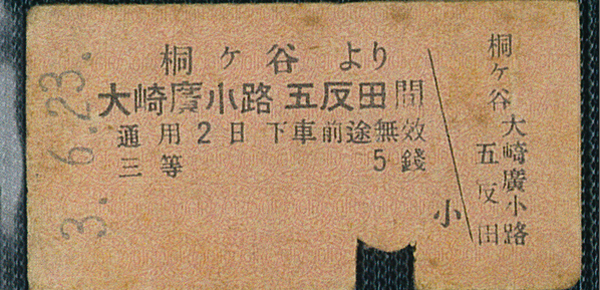 3. 6.23.
桐ヶ谷より
大崎廣小路 五反田間
通用2日 下車前途無効
三等 5錢
小
桐ヶ谷
大崎廣小路
五反田